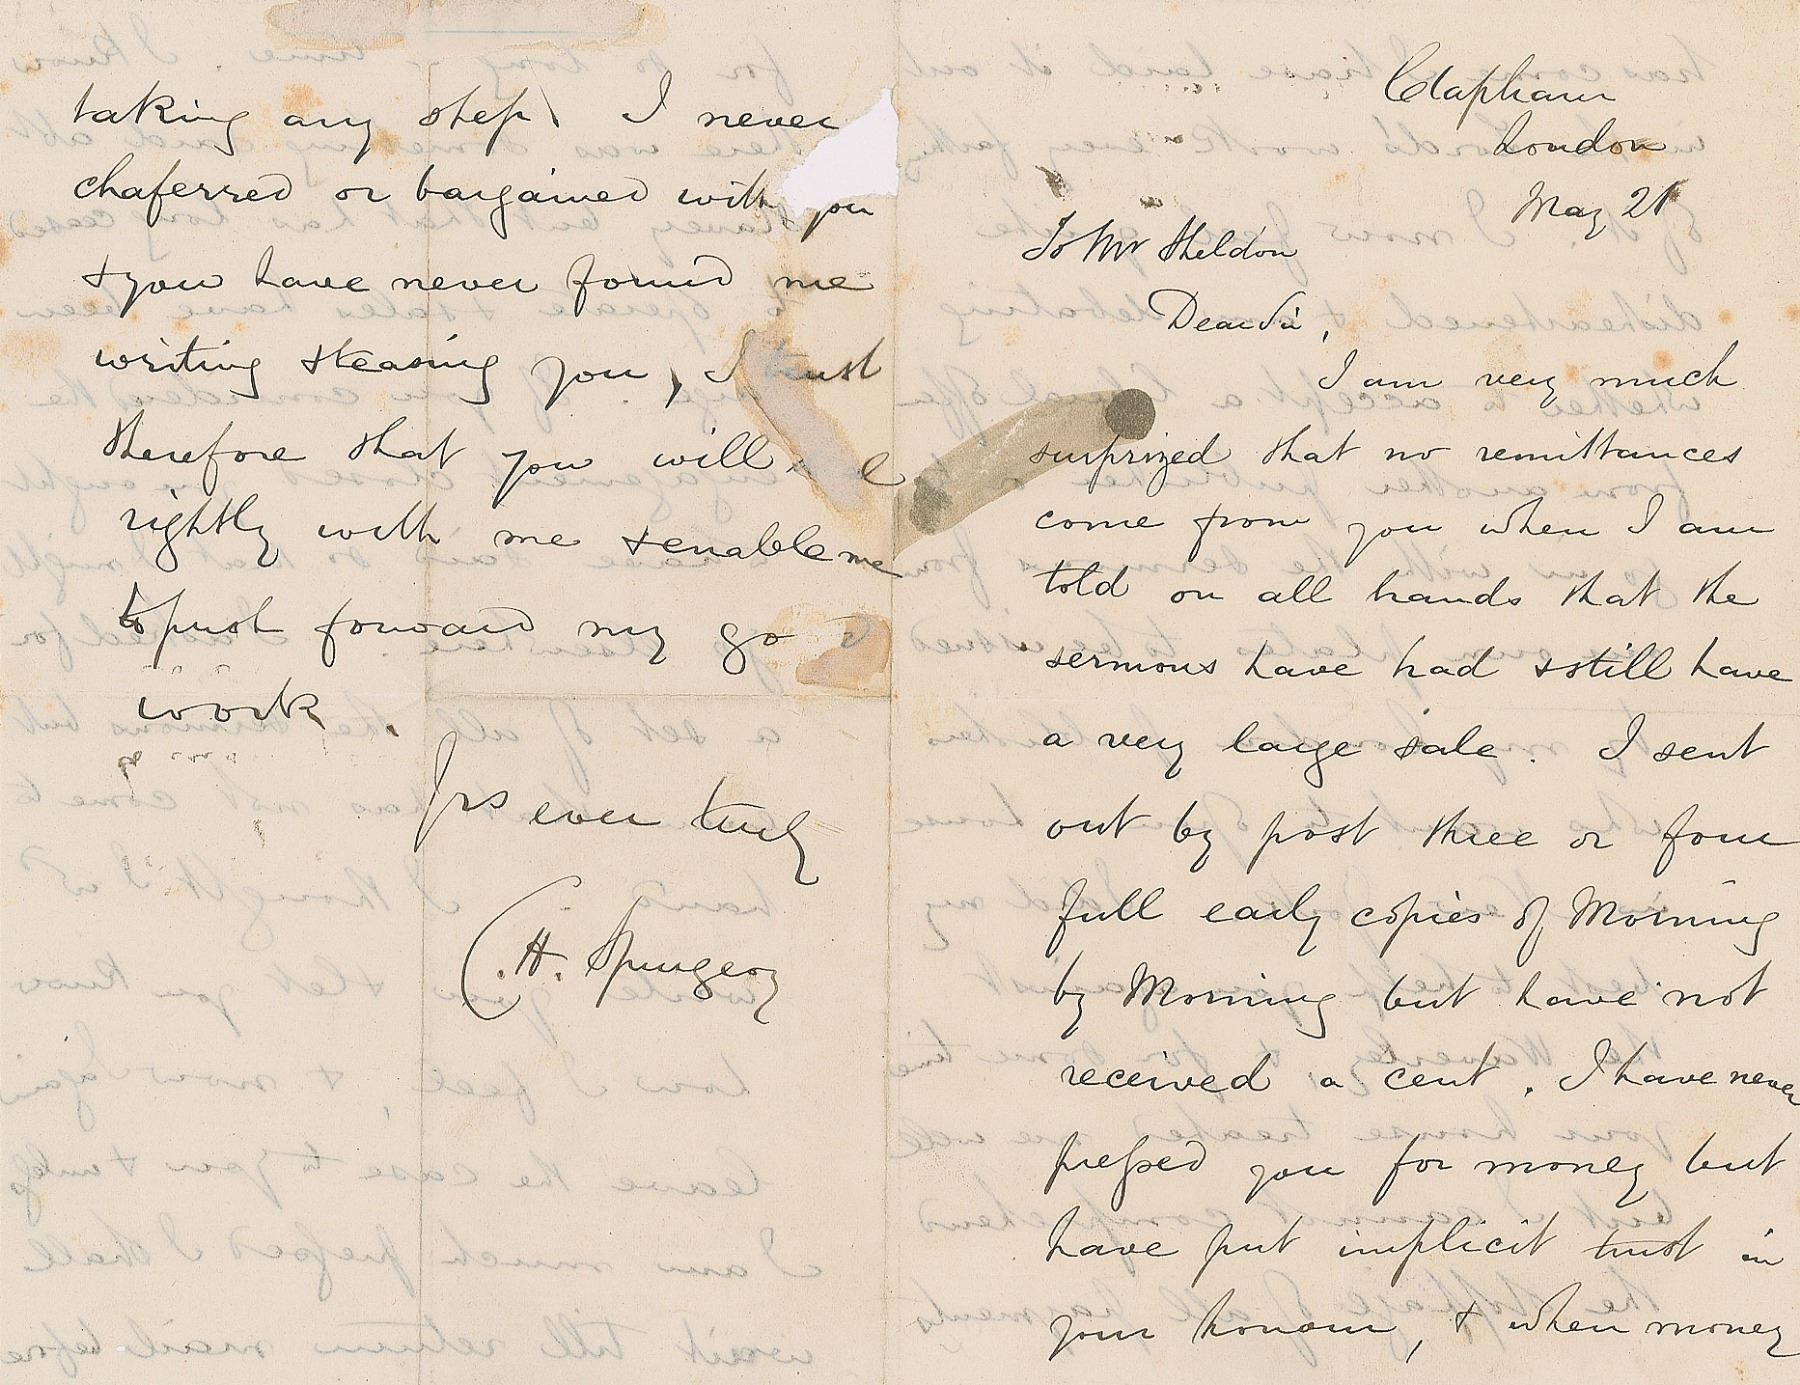 Clapham
London
May 21
To Mr Sheldon
Dear Sir,
I am very much
surprized that no remittances
come from you when I am
told on all hands that the
sermons have had & still have
a very large sale. I sent
out by post three or four
full early copies of Morning
by Morning but have not
received a cent. I have never
pressed you for money but
have put implicit trust in
your honour, & when money
taking any step. I never
chaferred or bargained with you
& you have never found me
writing & teasing you, I trust
therefore that you will
rightly with me & enable me
to push forward my go d
work.
Yrs ever truly
C. H. Spurgeon